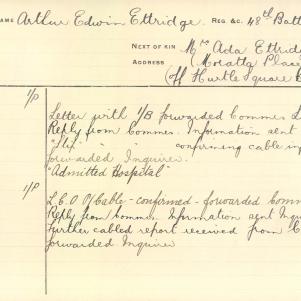 NAME Arthur Edwin Ettridge. REG &C. 48th Batt
NEXT OF KIN Mrs Ada Ettrid
ADDRESS Place
Off Hurtle Square
Letter with I/B forwarded Commer
Reply from Commer. Information sent
"Slip" " " confirming cable
forwarded Inquirer.
"Admitted Hospital"
L.C.O. O/Cable - confirmed - forwarded Comm
Reply from Commer. Information sent Inqui
Further cabled report received from C
forwarded Inquirer